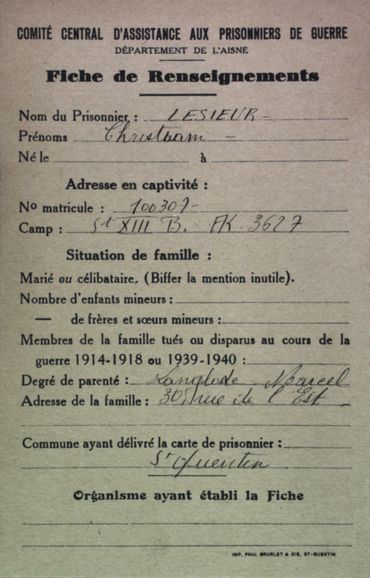 COMITÉ CENTRAL D'ASSISTANCE AUX PRISONNIERS DE GUERRE
DÉPARTEMENT DE L'AISNE
Fiche de Renseignements
Nom du Prisonnier : LESIEUR
Prénoms Christiam
Né le à
Adresse en captivité :
No matricule : 100307
Camp : St XIII B. AK. 3627
Situation de famille :
Marié ou célibataire. (Biffer la mention inutile).
Nombre d'enfants mineurs :
— de frères et sœurs mineurs :
Membres de la famille tués ou disparus au cours de la
guerre 1914-1918 ou 1939-1940 :
Degré de parenté : Langlode Marcel
Adresse de la famille : 305 rue de l'Est
Commune ayant délivré la carte de prisonnier :
St Quentin
Organisme ayant établi la Fiche
IMP. PAUL BOURLET & CIE, ST-QUENTIN